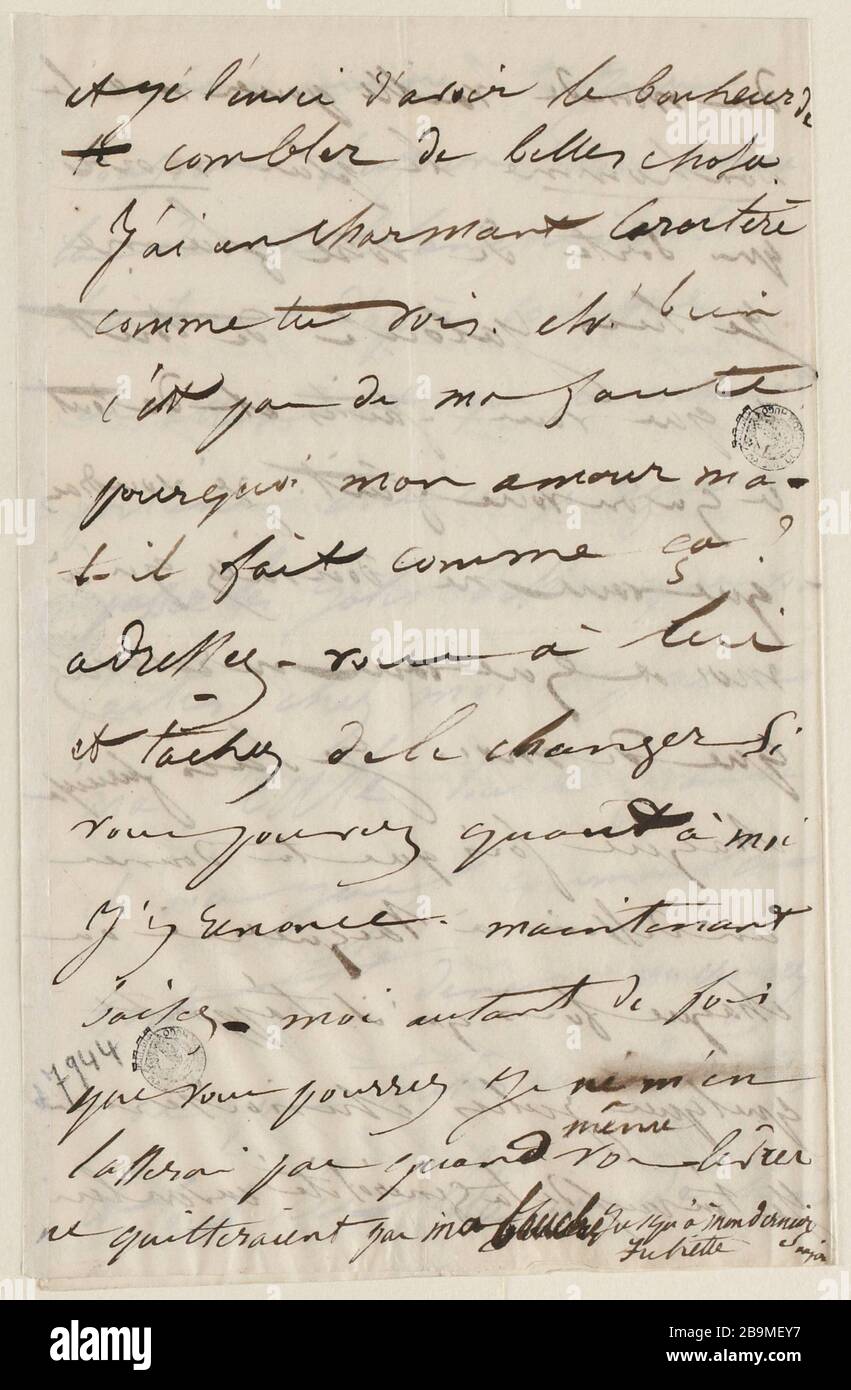 et j'ai l'envie d'avoir le bonheur de
te combler de belles choses.
J'ai un charmant caractère
comme tu vois. eh! bien
c'est pas de ma faute
pourquoi mon amour m'a-
t-il fait comme ça ?
adressez-vous à lui
et tâchez de le changer si
vous pouvez quant à moi
j'y renonce. maintenant
baisez-moi autant de fois
que vous pourrez je ne m'en
lasserai pas quand même vos lèvres
ne quitteraient pas ma bouche jusqu'à mon dernier
Juliette
7944
alamy
Image ID: 2B9MEY7
www.alamy.com